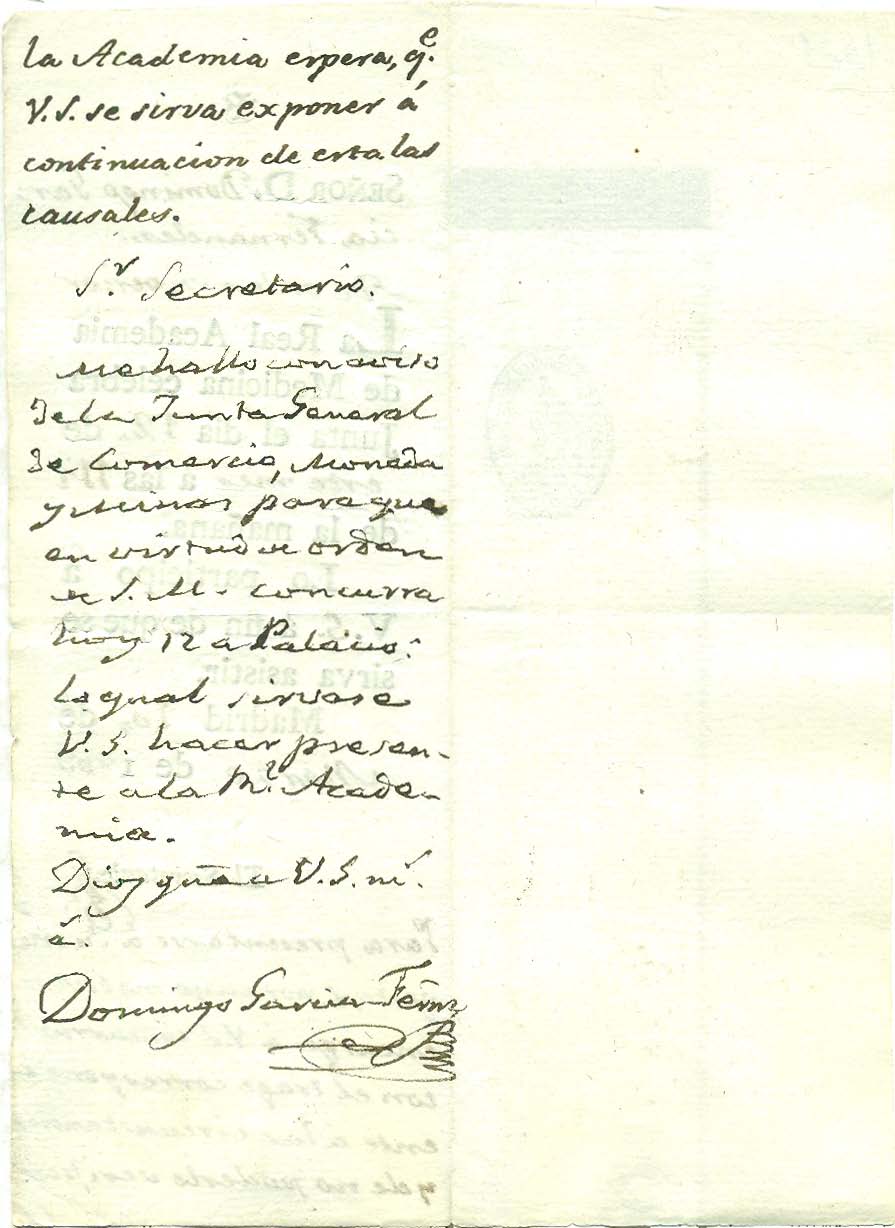 la Academia espera, q.e
V.S. se sirva exponer á
continuacion de esta las
causales.
S.r Secretario.
Me hallo con aviso
de la Junta General
de Comercio, Moneda
y Minas para que
en virtud de orden
de S. M. concurra
hoy 12 a Palacio:
lo qual sirvase
V. S. hacer presen-
te a la R.l Acade-
mia.
Dios gue a V. S. m.s
a.s
Domingo Garcia Fernz